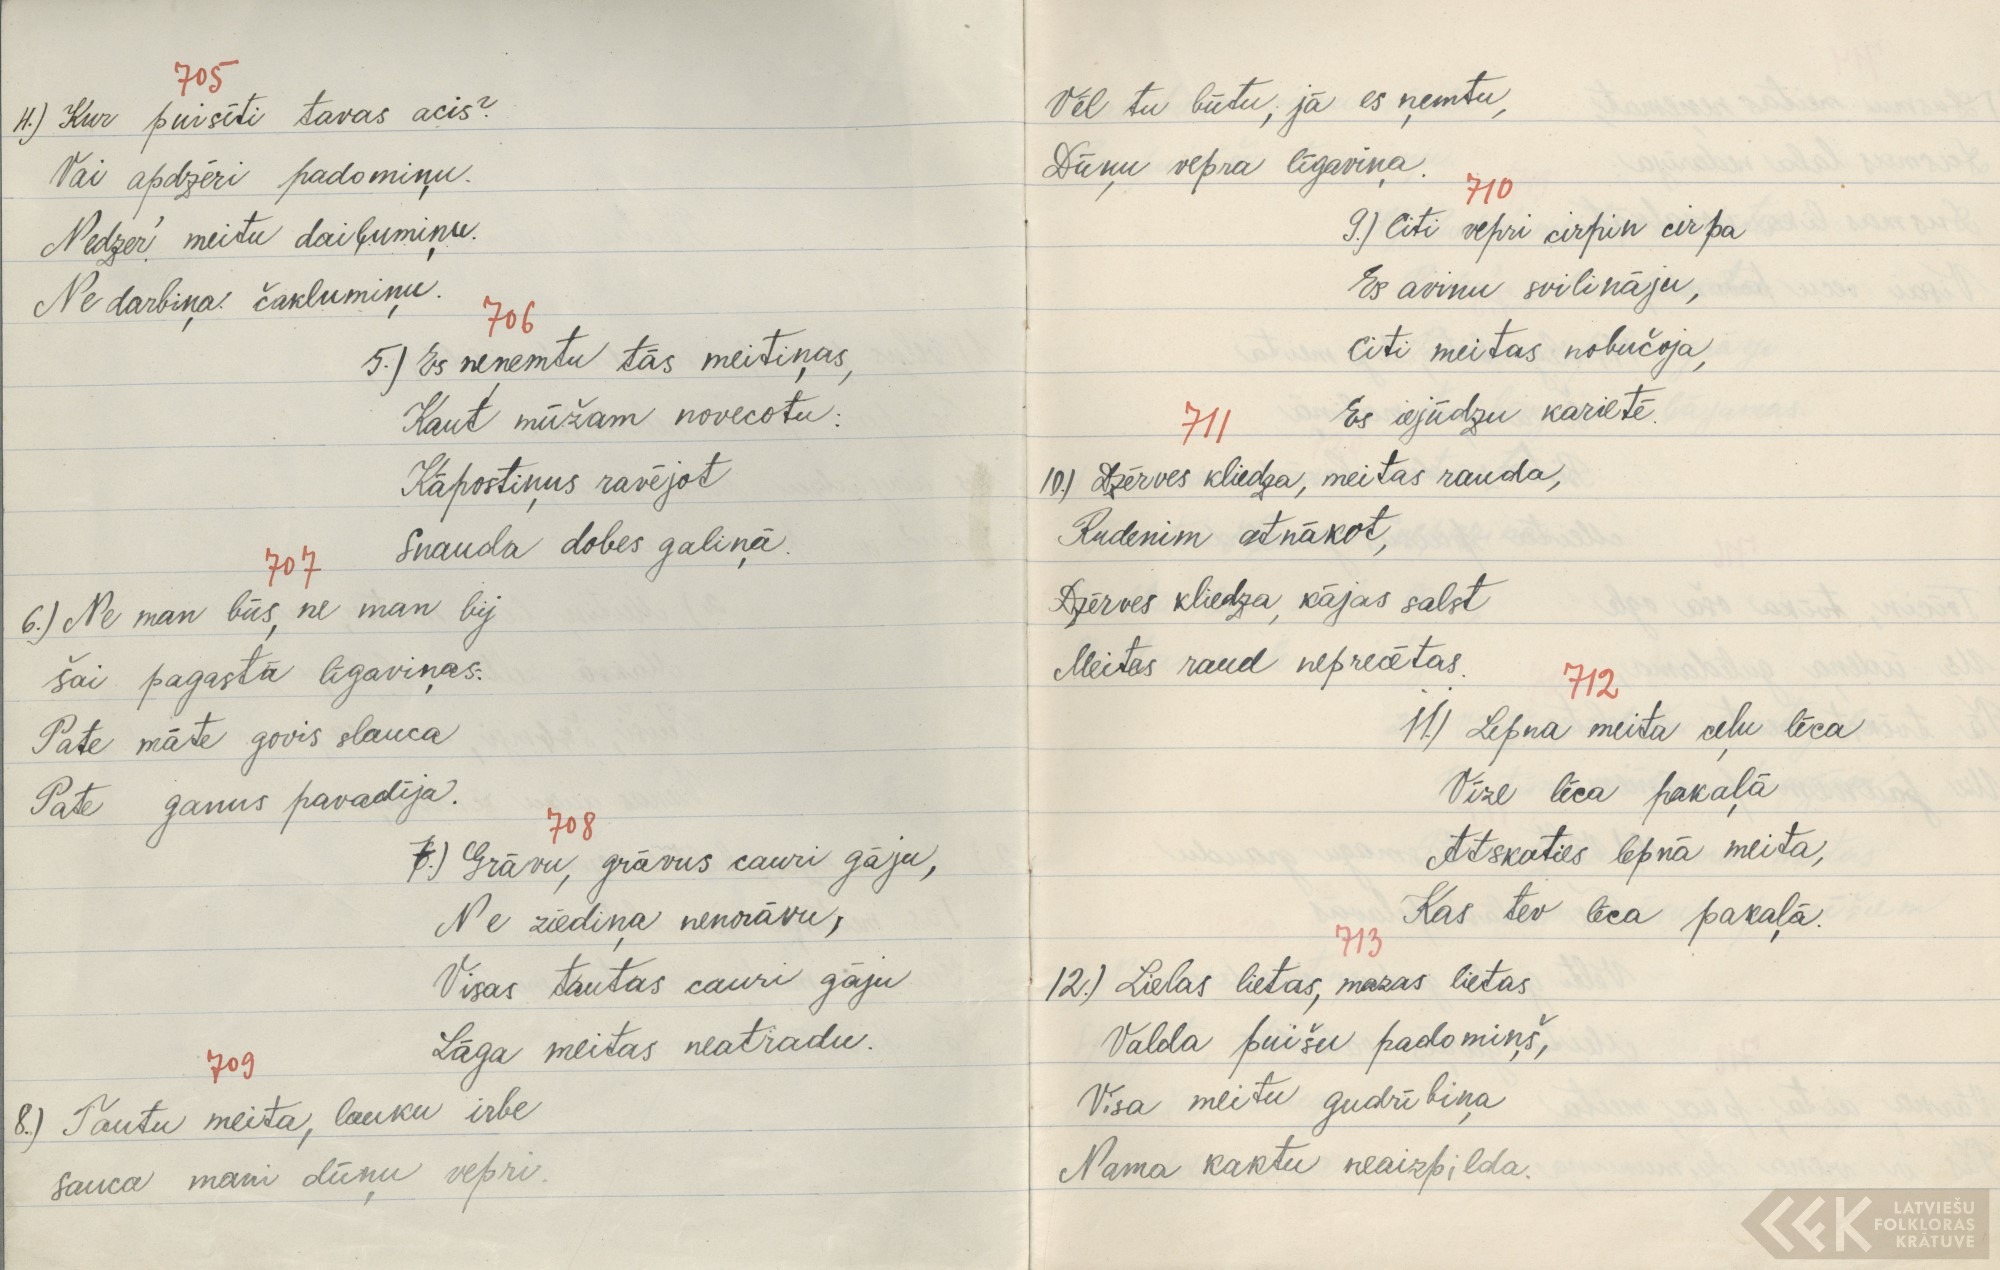 705
4.) Kur puisīti tavas acis?
Vai apdzēri padomiņu.
Nedzer! meitu daiļumiņu.
Ne darbiņa! čaklumiņu.
706
5.) Es neņemtu tās meitiņas,
Kaut mūžam novecotu:
Kāpostiņus ravējot
Snauda dobes galiņā.
707
6.) Ne man būs, ne man bij
šai pagastā līgaviņas:
Pate māte govis slauca
Pate ganus pavadīja.
708
7.) Grāvu, grāvus cauri gāju,
Ne ziediņa nenorāvu,
Visas tautas cauri gāju
Lāga meitas neatradu.
709
8.) Tautu meita, lauku irbe
sauca mani dūņu vepri.
Vēl tu būtu, jā es ņemtu,
Dūņu vepra līgaviņa.
710
9.) Citi vepri cirpin cirpa
Es avinu svilināju,
Citi meitas nobučoja,
Es iejūdzu karietē.
711
10.) Dzērves kliedza, meitas rauda,
Rudenim atnākot,
Dzērves kliedza, kājas salst
Meitas raud neprecētas.
712
11.) Lepna meita ceļu lēca
Vīze lēca pakaļā
Atskaties lepnā meita,
Kas tev lēca pakaļā.
713
12.) Lielas lietas, mazas lietas
Valda puišu padomiņš,
Visa meitu gudrībiņa
Nama kaktu neaizpilda.
LATVIEŠU
FOLKLORAS
KRĀTUVE